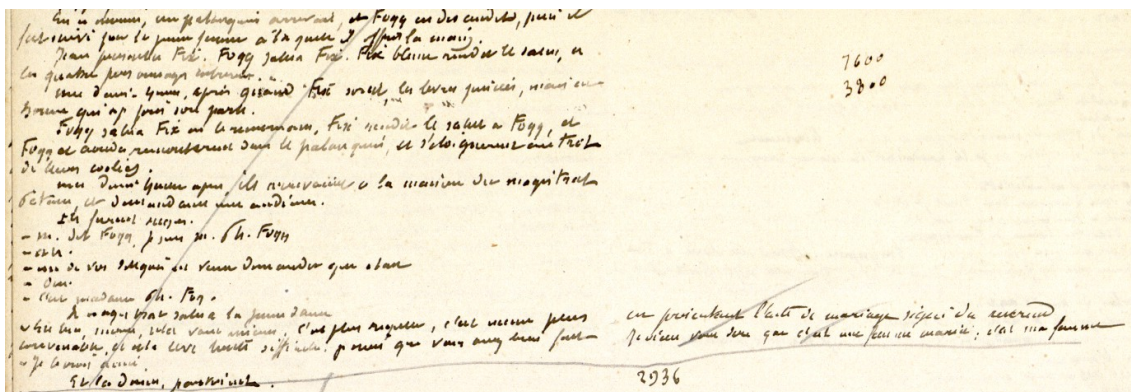 En ce moment, un palanquin arrivait, et Fogg en descendit, puis il
fut suivi par la jeune femme à laquelle il offrit la main.
Jean présenta Fix. Fogg salua Fix. Fix blême rendit le salut, et
les quatre personnages entrèrent.
une demi-heure, après quand Fix sortit, les lèvres pincées, mais en
homme qui a pris son parti.
Fogg salua Fix en le remerciant, Fix rendit le salut à Fogg, et
Fogg et Aouda remontèrent dans le palanquin, et s'éloignèrent au trot
de leurs coolies.
une demi heure après ils arrivaient à la maison du magistrat
et demandaient une audience.
Ils furent reçus.
- M. dit Fogg, je suis M. Ph. Fogg
- oui.
- une de vos
- Oui.
- C'est madame Ph. Fogg.
Le magistrat salua la jeune dame
c'est plus régulier, c'est même plus
convenable, et cela lève toute difficulté. que vous avez bien fait
- Je le crois aussi.
7600
3800
en présentant l'acte de mariage signé du révérend
Je viens vous dire que c'est une femme mariée; c'est ma femme
2936